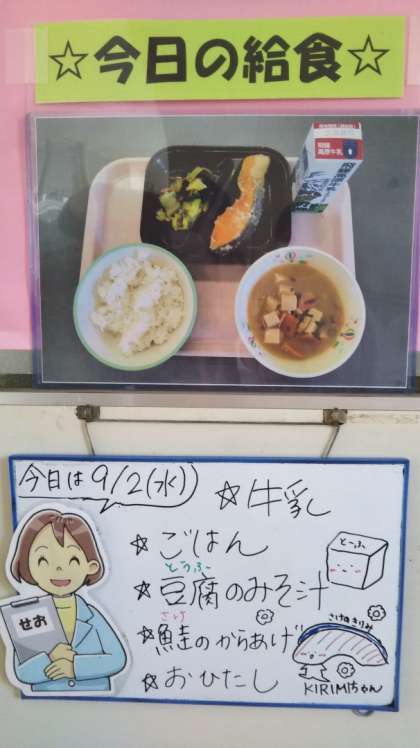 ☆今日の給食☆
今日は9/2(水)
☆牛乳
☆ごはん
とうふ
☆豆腐のみそ汁
さけ
☆鮭のからあげ
☆おひたし
せお
とーふ
さけのきりみ
KIRIMIちゃん